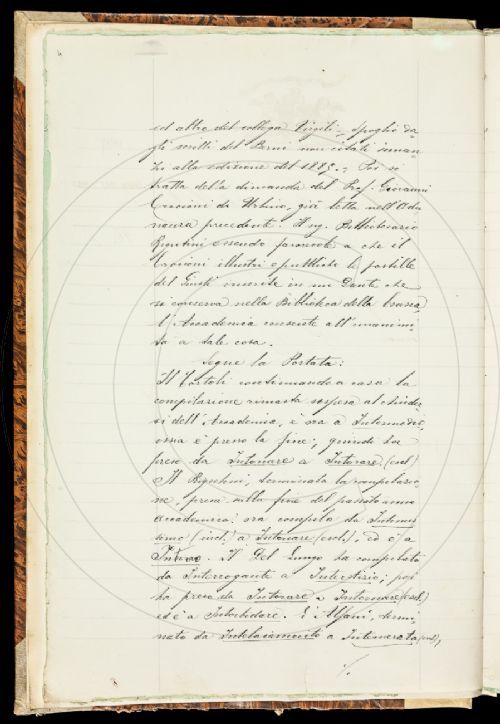 ed altro del collega Virgili, spoglio da-
gli scritti del Berni non citati innan-
zi alla edizione del 1885. Poi si
tratta della dimanda del Prof. Giovanni
Crocioni da Urbino, già letta nell'Adu-
nanza precedente. Il sig. Bibliotecario
Rigutini essendo favorevole a che il
Crocioni illustri e pubblichi le postille
del Giusti inserite in un Dante che
si conserva nella Biblioteca della Crusca,
l'Accademia consente all'unanimi-
tà a tale cosa.
Segue la Portata:
Il Tortoli continuando a casa la
compilazione rimasta sospesa al chiuder-
si dell'Accademia, è ora a Intermedio,
ossia è presso la fine; quindi ha
preso da Intonare a Intorare (escl.)
Il Rigutini, terminata la compilazio-
ne, presa sulla fine del passato anno
accademico: ora compila da Intimis-
simo (incl.) a Intonare (escl.), ed è a
. Il Del Lungo ha compilato
da Interrogante a Interstizio; poi
ha preso da Intorare a Intornare (escl.)
ed è a Intorbidare. E l'Alfani, termi-
nato da Intelaiamento a Intemerata (escl.),
./.